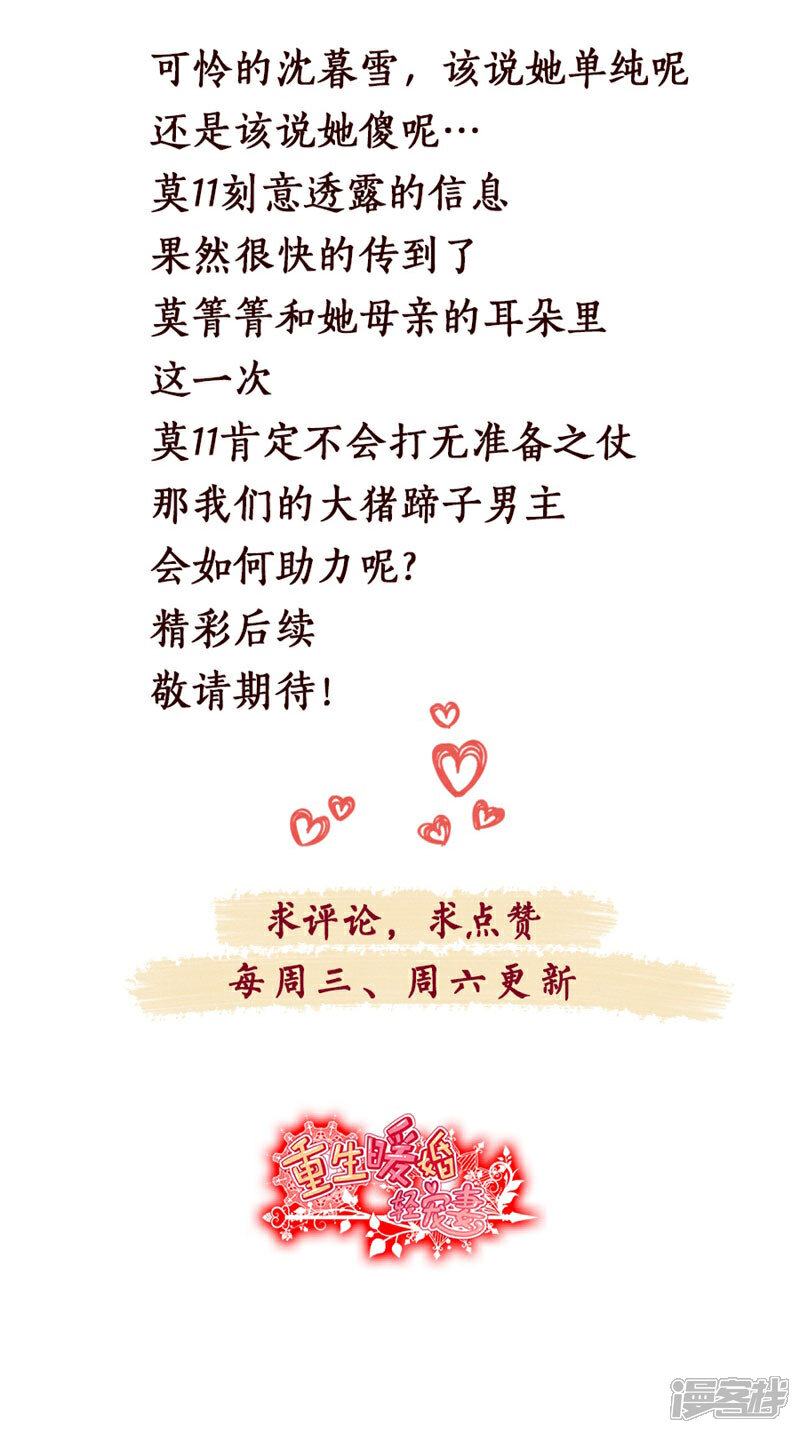 可怜的沈暮雪，该说她单纯呢
还是该说她傻呢…
莫11刻意透露的信息
果然很快的传到了
莫箐箐和她母亲的耳朵里
这一次
莫11肯定不会打无准备之仗
那我们的大猪蹄子男主
会如何助力呢?
精彩后续
敬请期待!
求评论，求点赞
每周三、周六更新
重生暖婚
轻宠妻
漫客栈